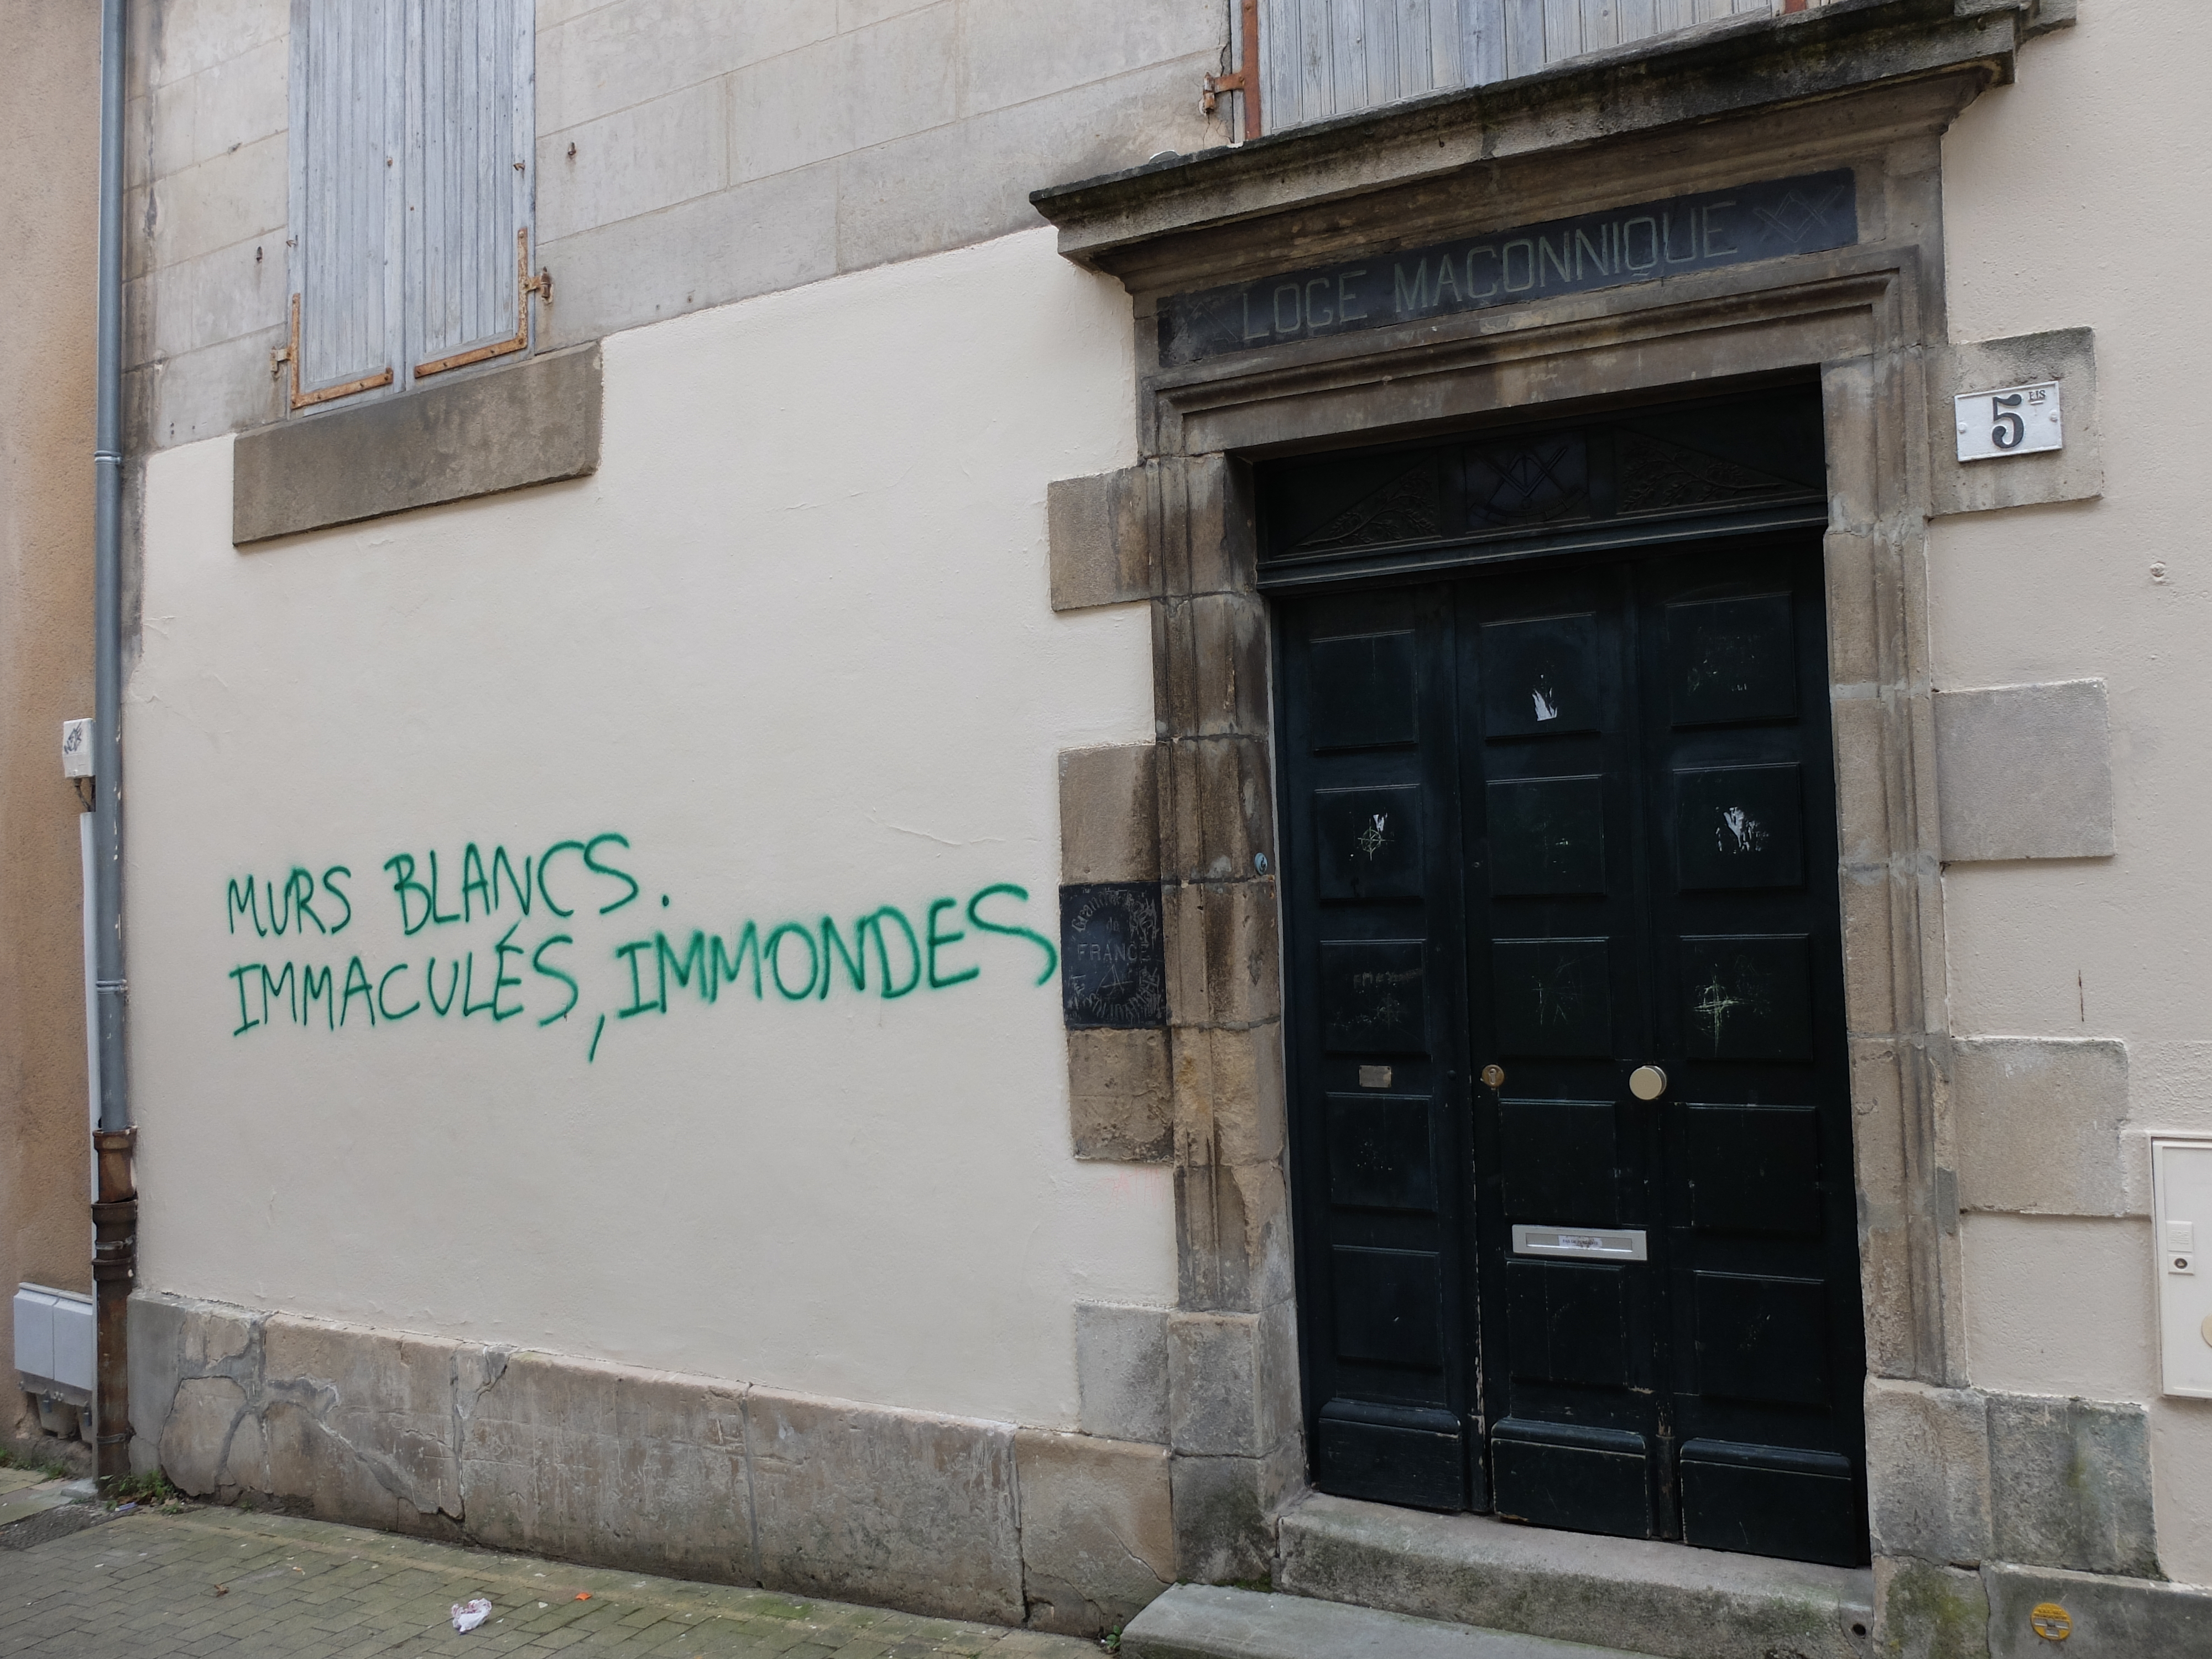 LOGE MACONNIQUE
5 BIS
MURS BLANCS.
IMMACULÉS, IMMONDES
de
FRANCE